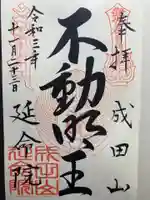 奉拝
成田山
不動明王
延命院
令和三年
十一月二十三日